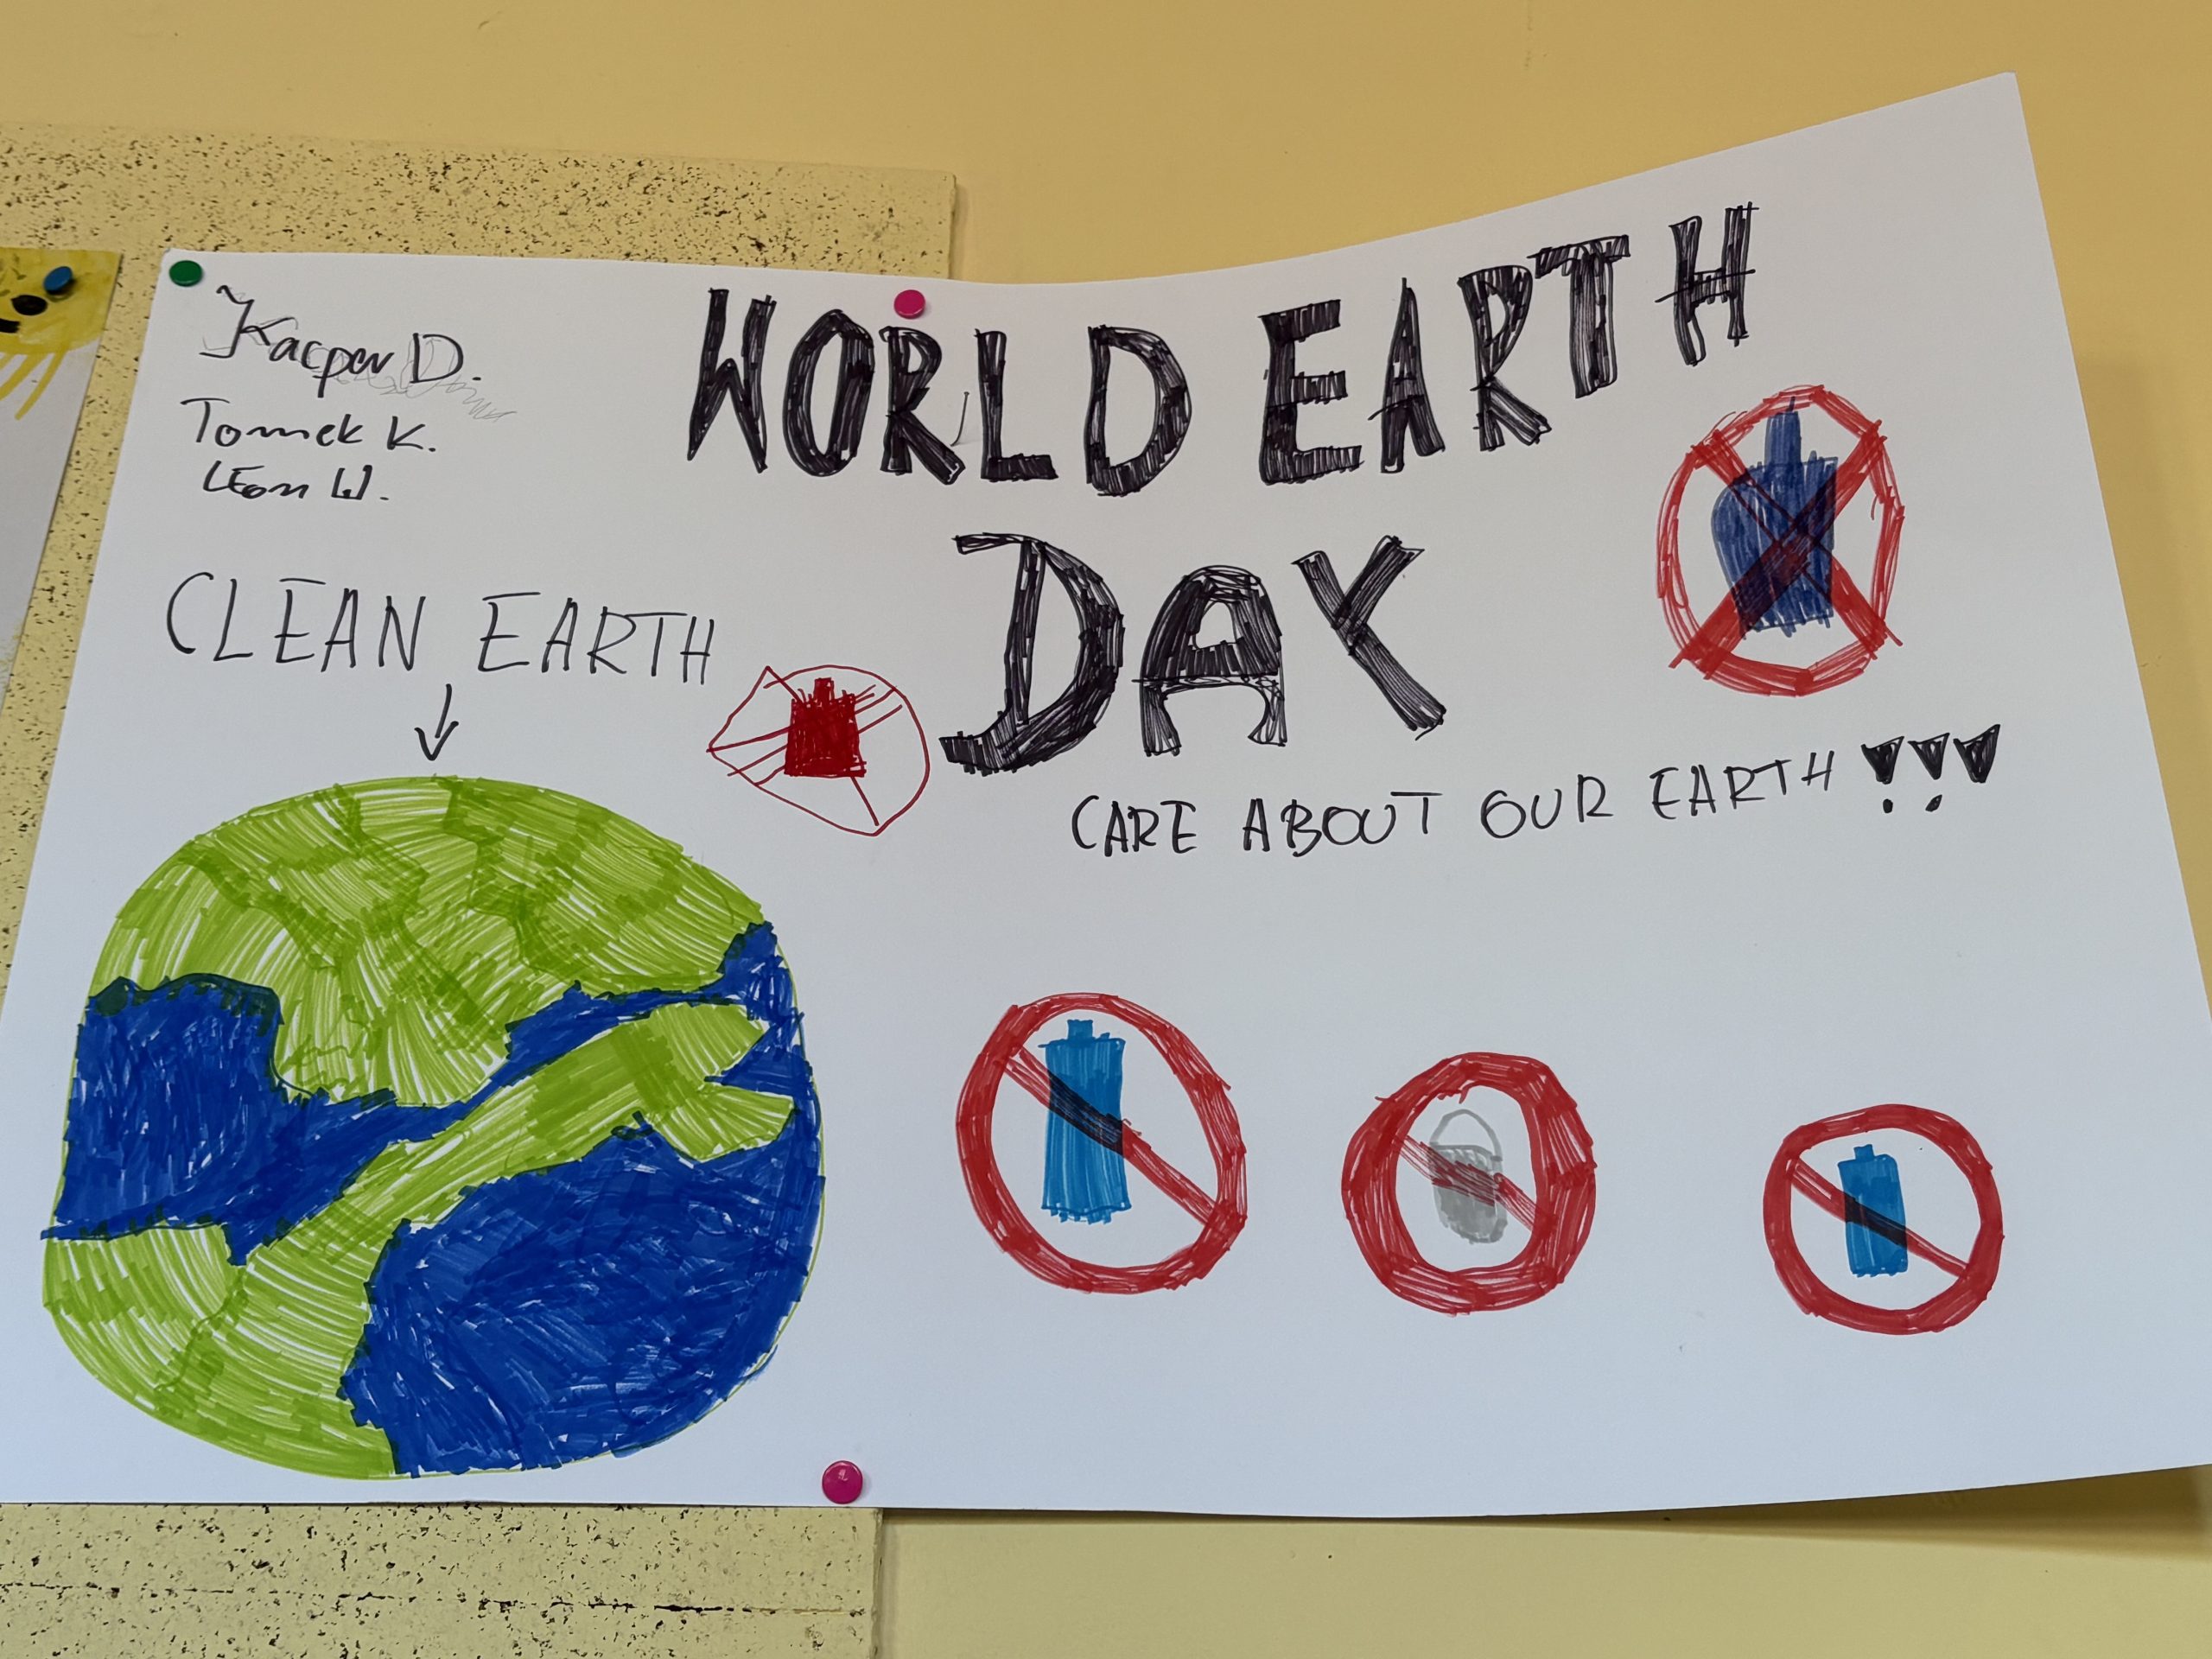 Kacper D.
Tomek K.
LEon W.
WORLD EARTH
DAY
CLEAN EARTH
CARE ABOUT OUR EARTH !!!